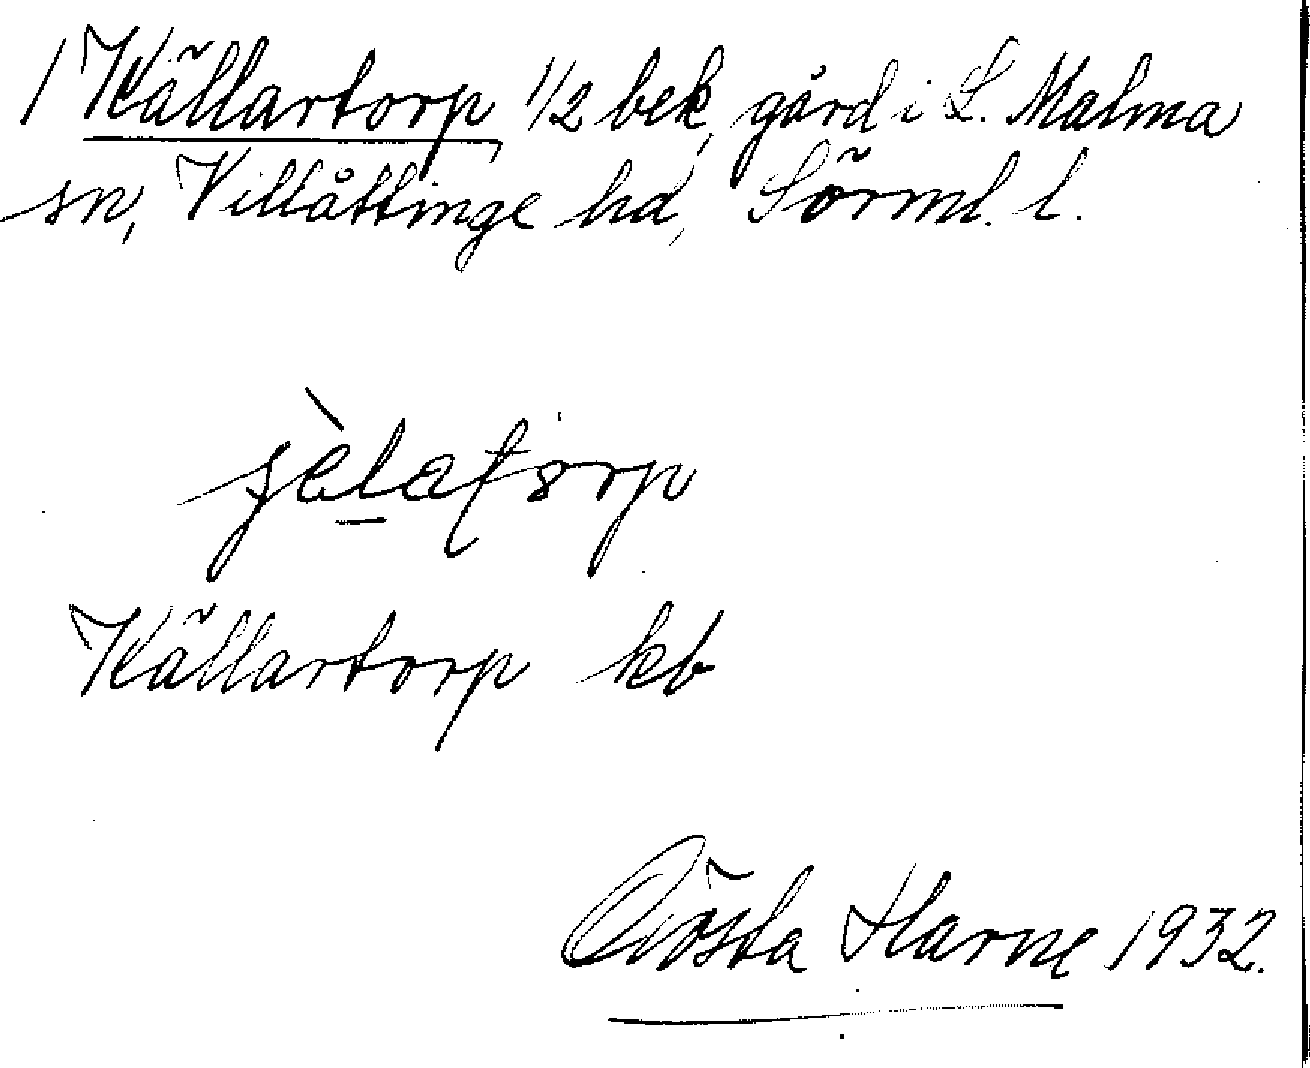 1 Källartorp, 1/2 bek, gård i L. Malma
sn, Villåttinge hd, Sörml. l.
Källartorp kb
Gösta Harne 1932.